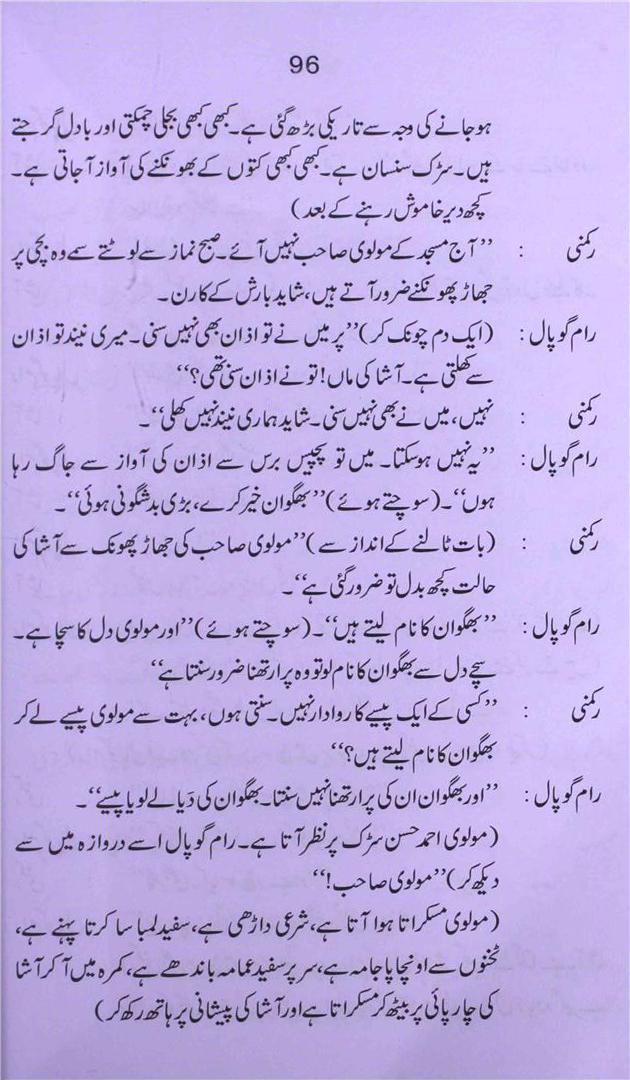 96
ہوجانے کی وجہ سے تاریکی بڑھ گئی ہے۔ کبھی کبھی بجلی چمکتی اور بادل گرجتے
ہیں۔ سڑک سنسان ہے۔ کبھی کبھی کتوں کے بھونکنے کی آواز آجاتی ہے۔
کچھ دیر خاموش رہنے کے بعد)
رکمنی : ’’آج مسجد کے مولوی صاحب نہیں آئے۔ صبح نماز سے لوٹتے سمے وہ بچی پر
جھاڑ پھونکنے ضرور آتے ہیں، شاید بارش کے کارن۔
رام گوپال : (ایک دم چونک کر) ’’پر میں نے تو اذان بھی نہیں سنی۔ میری نیند تو اذان
سے کھلتی ہے۔ آشا کی ماں! تو نے اذان سنی تھی؟‘‘
رکمنی : نہیں، میں نے بھی نہیں سنی۔ شاید ہماری نیند نہیں کھلی‘‘۔
رام گوپال : ’’یہ نہیں ہوسکتا۔ میں تو پچیس برس سے اذان کی آواز سے جاگ رہا
ہوں‘‘۔ (سوچتے ہوئے) ’’بھگوان خیر کرے، بڑی بدشگونی ہوئی‘‘۔
رکمنی : (بات ٹالنے کے انداز سے) ’’مولوی صاحب کی جھاڑ پھونک سے آشا کی
حالت کچھ بدل تو ضرور گئی ہے‘‘۔
رام گوپال : ’’بھگوان کا نام لیتے ہیں‘‘۔ (سوچتے ہوئے) ’’اور مولوی دل کا سچا ہے۔
سچے دل سے بھگوان کا نام لو تو وہ پرارتھنا ضرور سنتا ہے‘‘
رکمنی : ’’کسی کے ایک پیسے کا روادار نہیں۔ سنتی ہوں، بہت سے مولوی پیسے لے کر
بھگوان کا نام لیتے ہیں؟‘‘
رام گوپال : ’’اور بھگوان ان کی پرارتھنا نہیں سنتا۔ بھگوان کی دَیا لے لو یا پیسے‘‘۔
(مولوی احمد حسن سڑک پر نظر آتا ہے۔ رام گوپال اسے دروازہ میں سے
دیکھ کر) ’’مولوی صاحب!‘‘
(مولوی مسکراتا ہوا آتا ہے، شرعی داڑھی ہے، سفید لمبا سا کرتا پہنے ہے،
ٹخنوں سے اونچا پاجامہ ہے، سر پر سفید عمامہ باندھے ہے، کمرہ میں آکر آشا
کی چارپائی پر بیٹھ کر مسکراتا ہے اور آشا کی پیشانی پر ہاتھ رکھ کر)